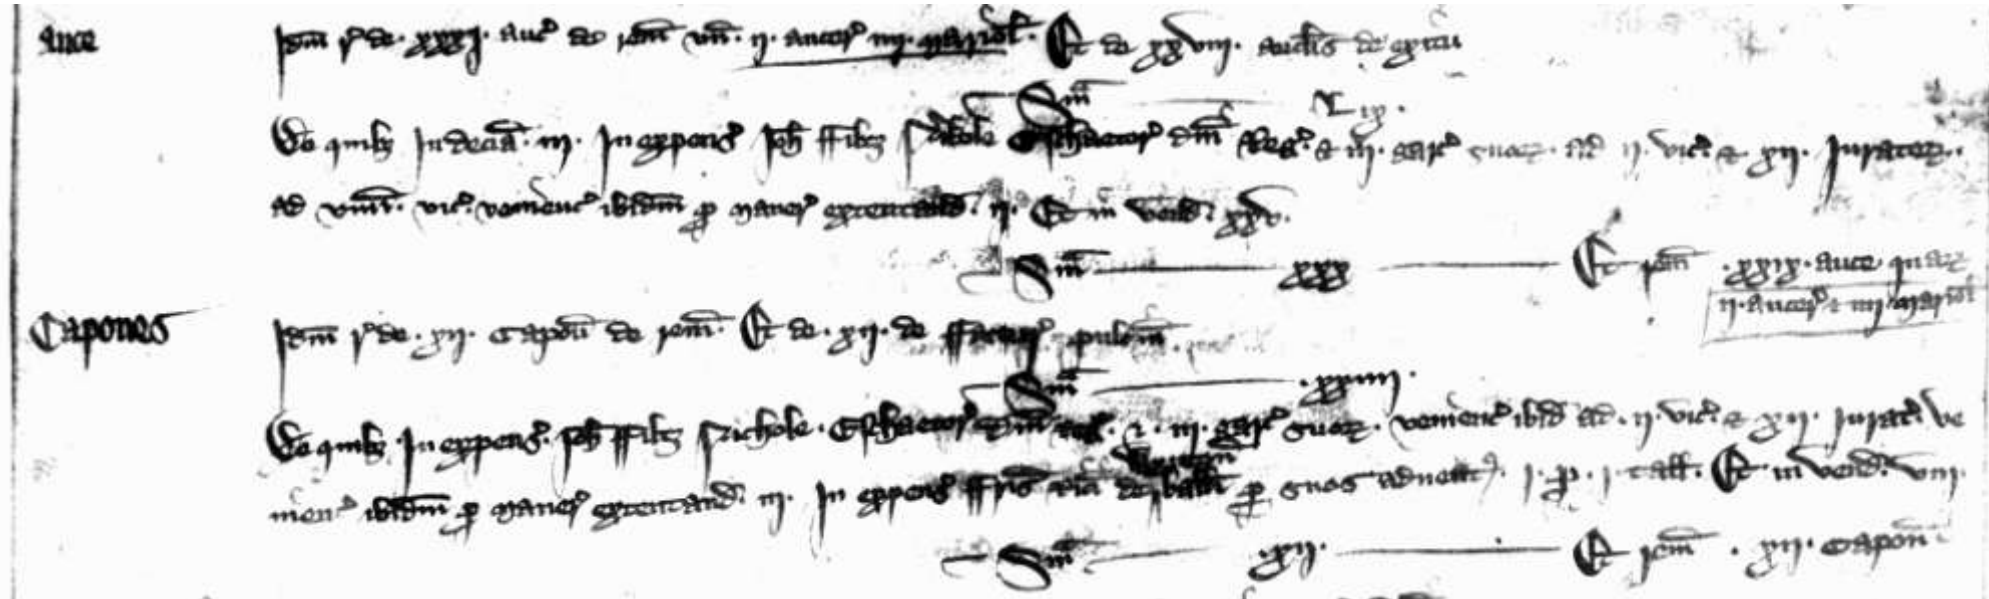 Auce Idm r' de . xxxj . auc' de rem vn . ij . ancer' iiij . mariol' . Et de xxviij . auclis de exitu
Sm Lix .
De quib3 In decia . iij . In expens' Joh ffilb3 Nichole Eschaetor' dni Reg' & iij . garc' suor . ad ij . vic' & xij . Jurator .
ad vnam . vic' . venient' ibidm p maner' extentand . ij . Et in vend . xxv .
Sm xxx Et rem . xxix . auce quar
ij . ancer' & iiij mariol
Capones Idm r' de . xij . capon de rem . Et de . xij . de ffactur' pulcin .
Sm . xxiiij .
De quib3 . In expens' . Joh ffilb3 Nichole . Eschaetor' dni Reg' . & . iij . garc' suor . venient' ibid ad . ij . vic' . & xij . Jurat' . ve
nient' ibidm p maner' extentand . iij . In expens' ffris p suos . j . p . j . tall . Et in vend . viij .
Sm . xij . Et rem . xij . capon